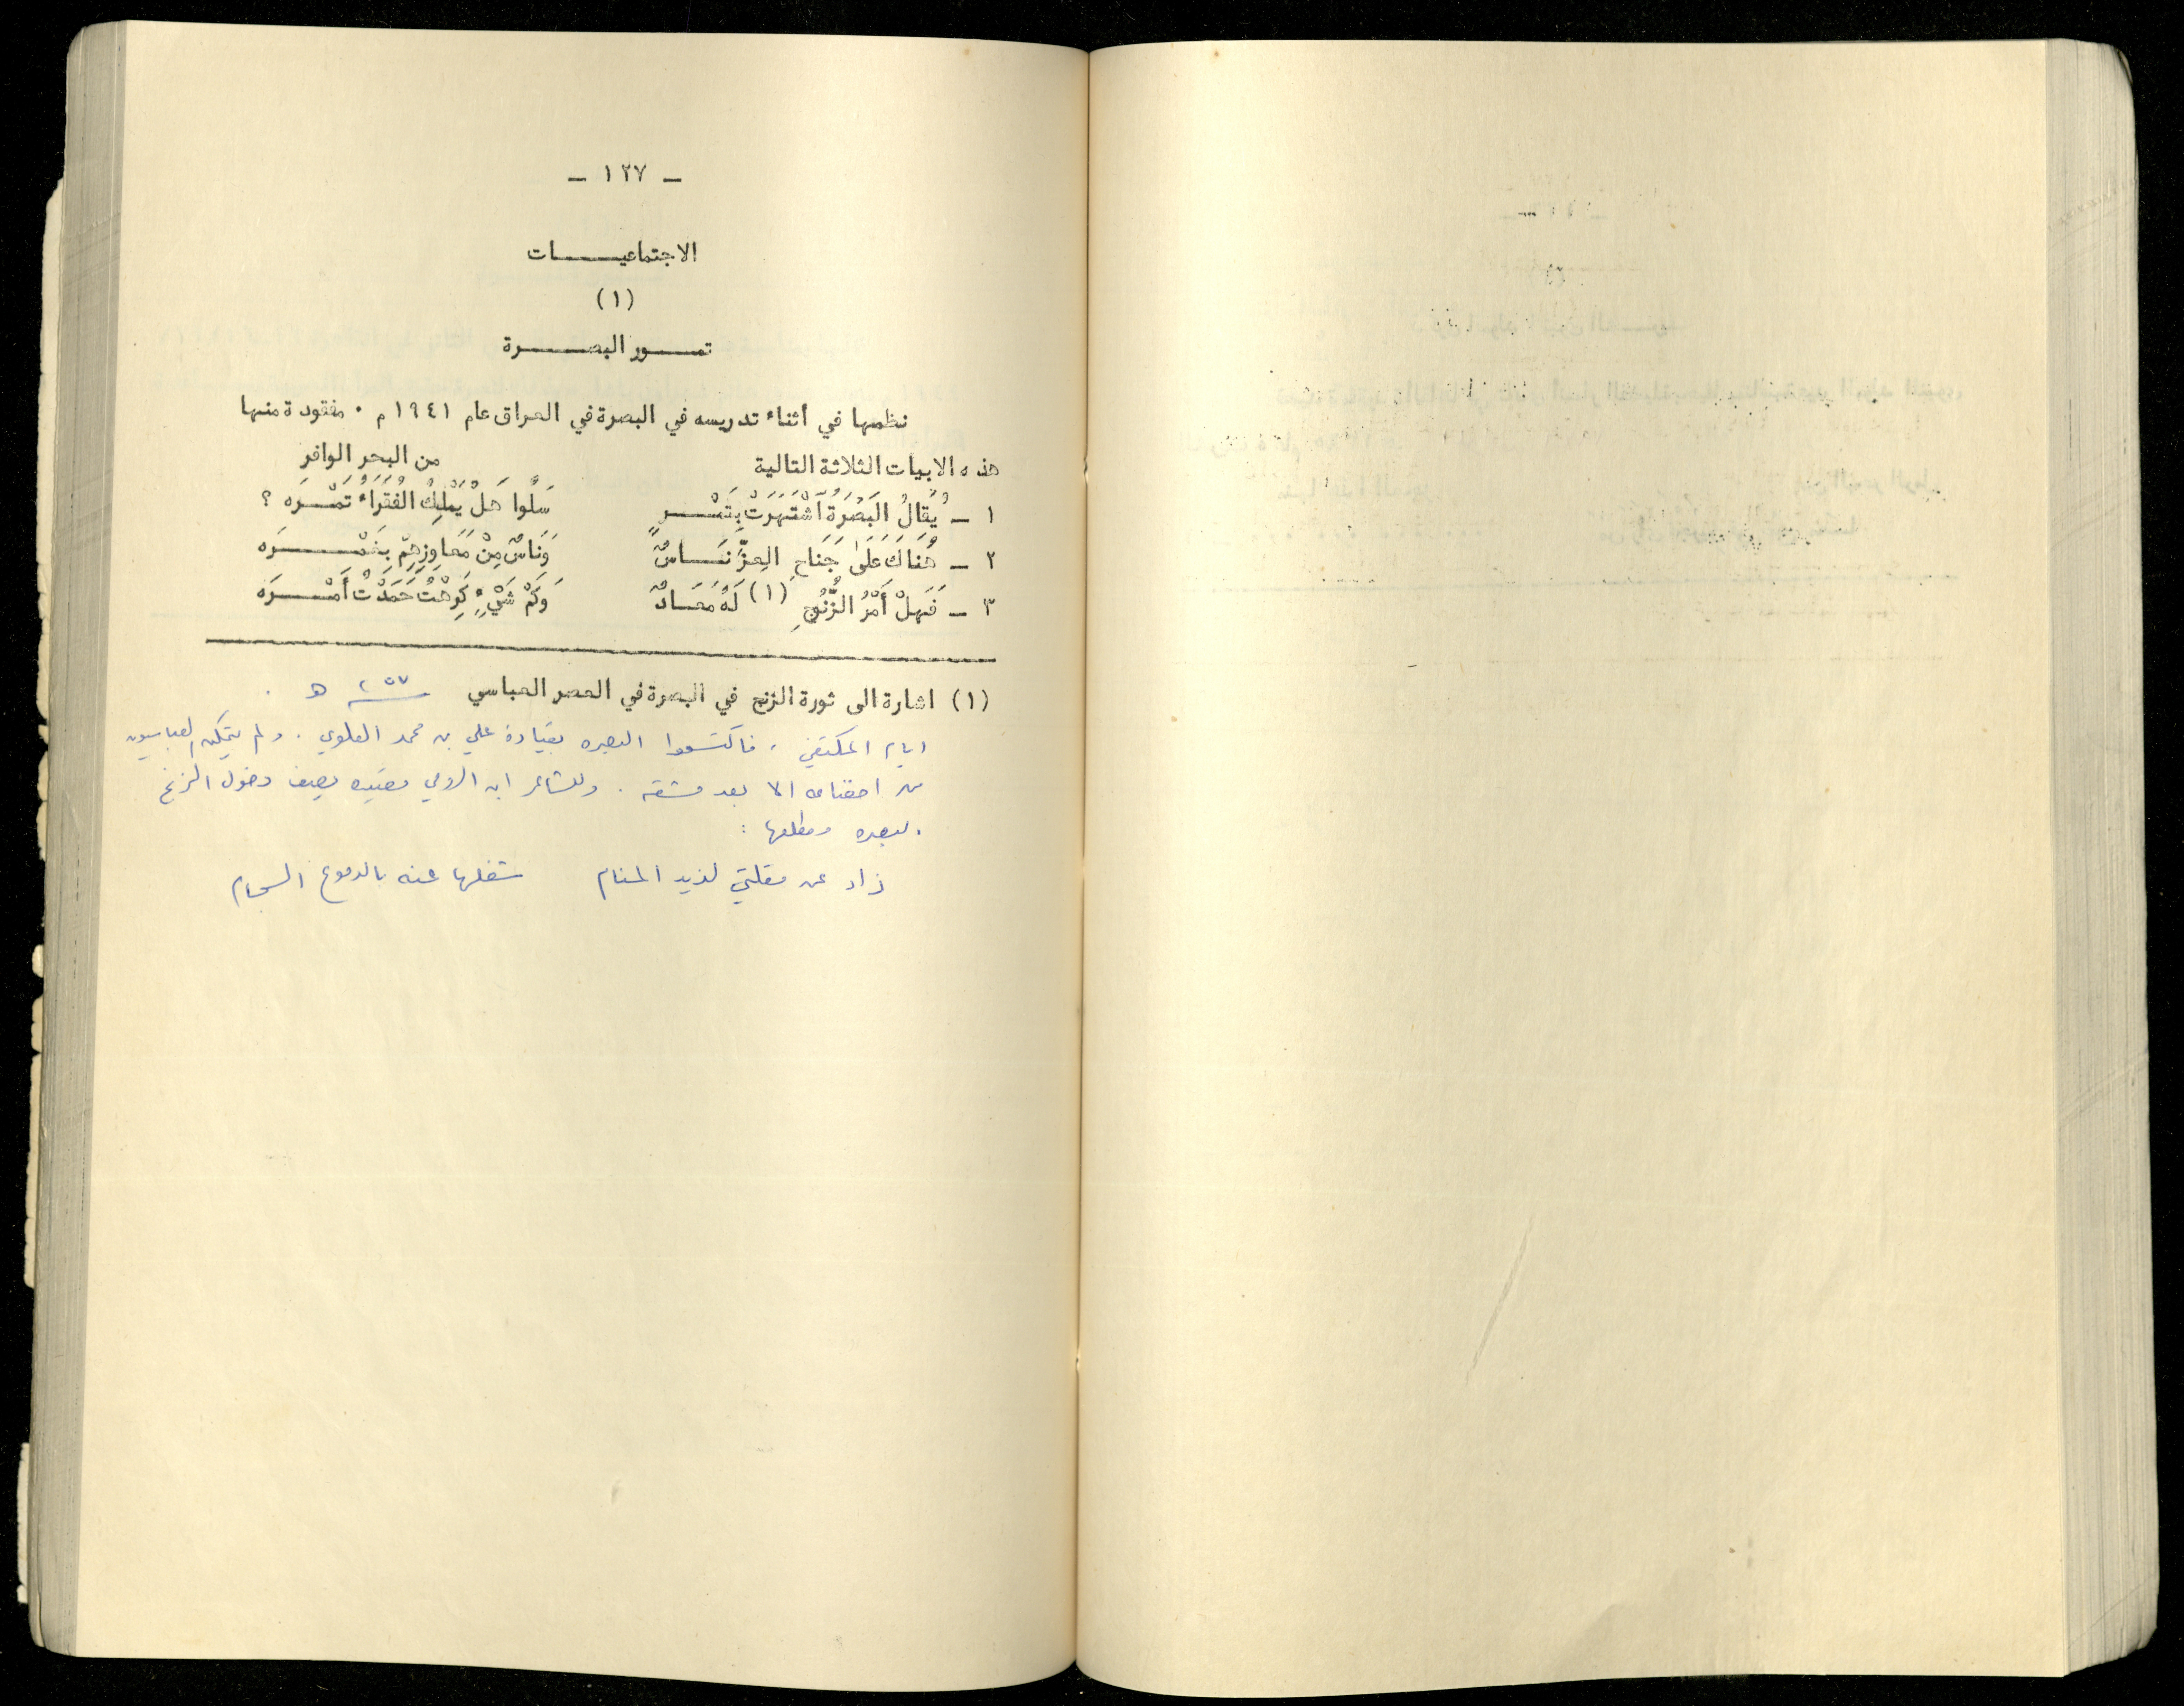 - ١٢٧ -
الاجتماعيات
(١)
تمور البصرة
نظمها في أثناء تدريسه في البصرة في العراق عام ١٩٤١ م . مفقودة منها
هذه الابيات الثلاثة التالية من البحر الوافر
١ - يُقَالُ الَبَصْرَةُ اَشْتَهَرَتْ بِتَمْرٍ سَلُوا هَلْ يَمْلِكُ الفُقَرَاءُ تَمْرَه ؟
٢ - هُنَاكَ عَلَى جَنَاحِ العِزِّ نَاسٌ وَنَاسٌ مِنْ مَعَاوِزِهِمْ بِغَمْرَه
٣ - فَهَلْ أَمْرُ الزُّنُوجِ (١) لَهُ مَعَادٌ وَكَمْ شَيْءٍ كَرِهْتُ حَمَدْتُ أَمْرَه
(١) اشارة الى ثورة الزنج في البصرة في العصر العباسي ٢٥٧ هـ .
ايام المكتفي ، فاكتسحوا البصره بقيادة علي بن محمد العلوي . ولم يتمكن العباسيون
من اخضاعه الا بعد مشقه . وللشاعر ابن الرومي قصيده يصف دخول الزنج
البصره ومطلعها :
زاد عن مقلتي لذيذ المنام شغلها عنه بالدموع السجام